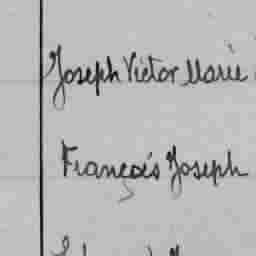 Joseph Victor Marie
François Joseph